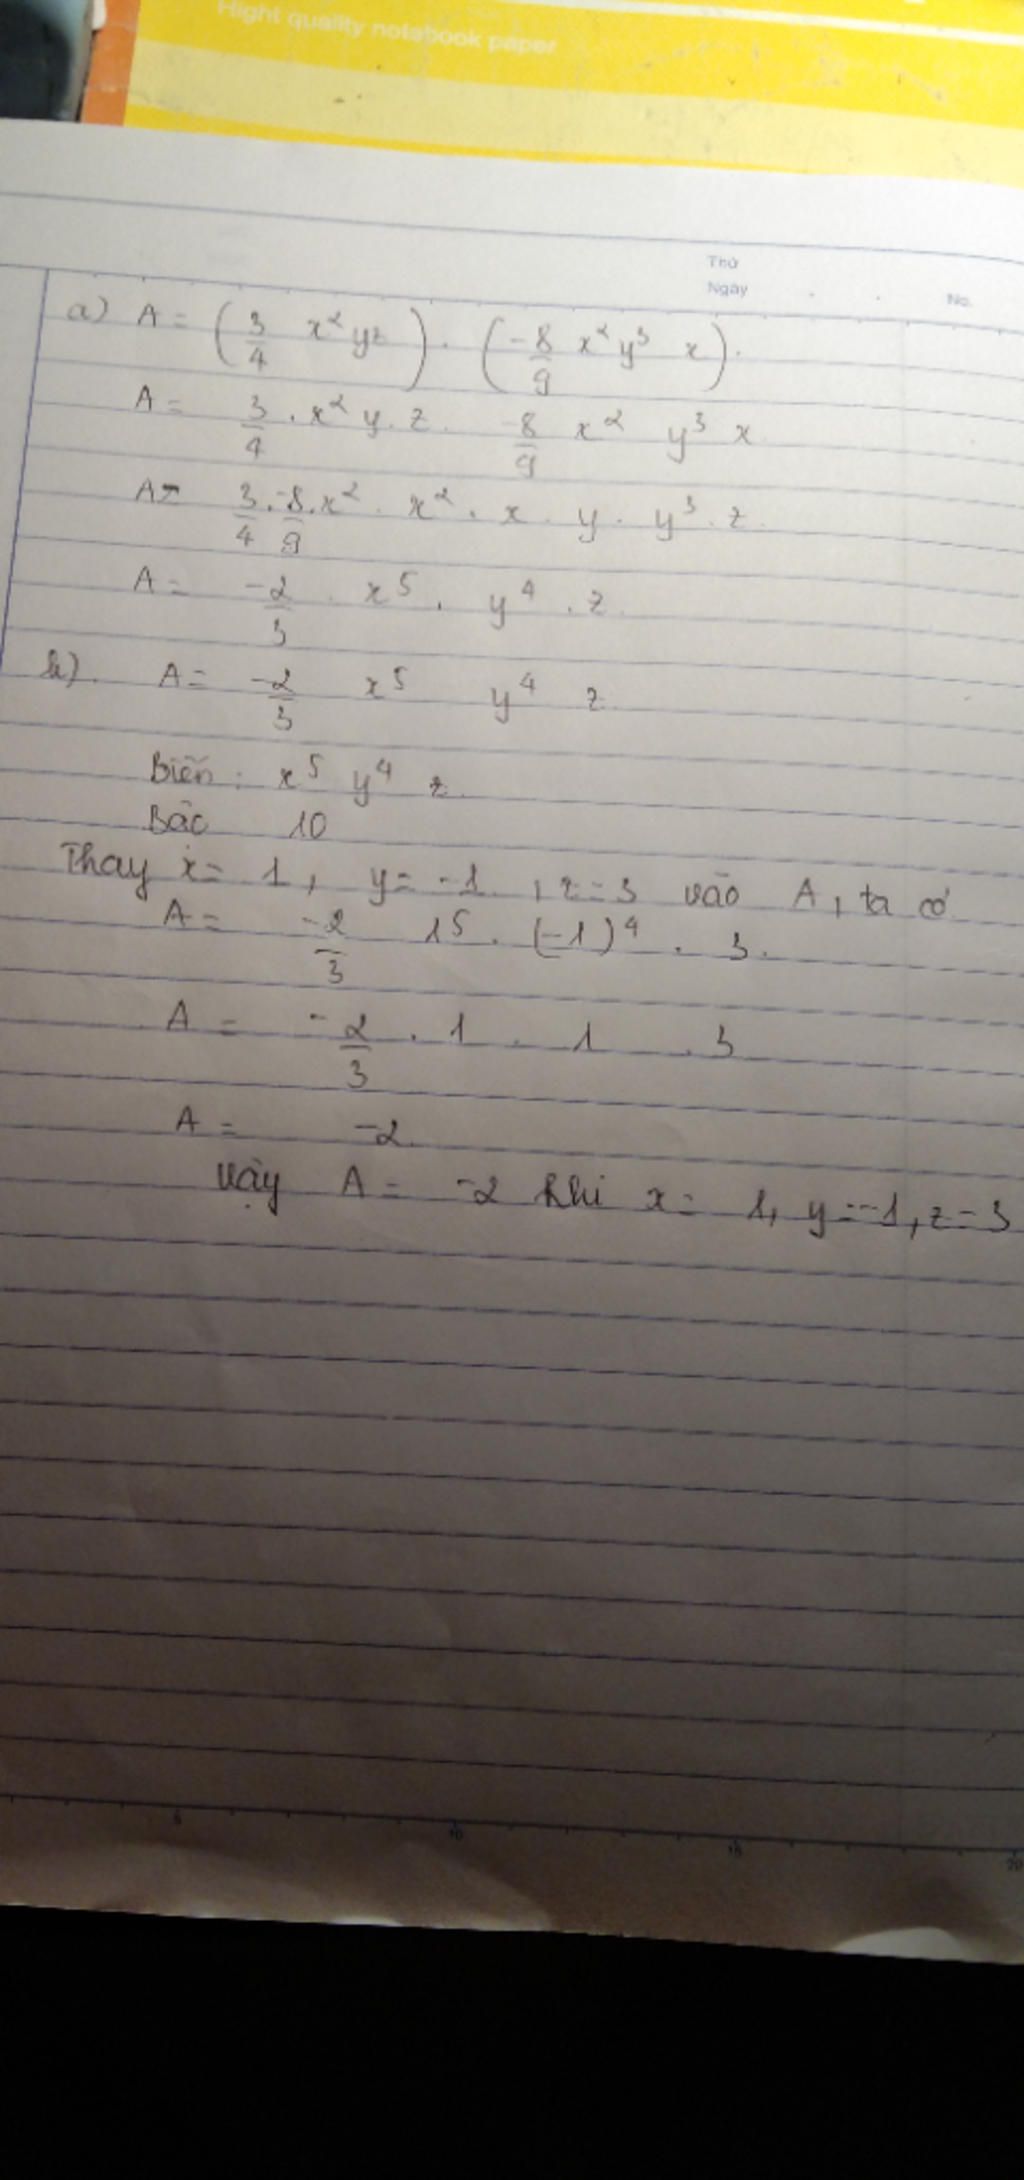 Hight quality notabook paper
Thứ
Ngày . . No.
a) A = (3/4 x² yz) . (-8/9 x² y³ x).
A = 3/4 . x² y . z . -8/9 x² y³ x
A = 3/4 . -8/9 . x² . x² . x . y . y³ . z .
A = -2/3 . x⁵ . y⁴ . z .
b). A = -2/3 x⁵ y⁴ z
Biến : x⁵ y⁴ z .
Bậc 10
Thay x = 1 , y = -1 , z = 3 vào A , ta có
A = -2/3 1⁵ . (-1)⁴ . 3 .
A = -2/3 . 1 . 1 . 3
A = -2
Vậy A = -2 khi x = 1, y = -1, z = 3
5 10 15 20